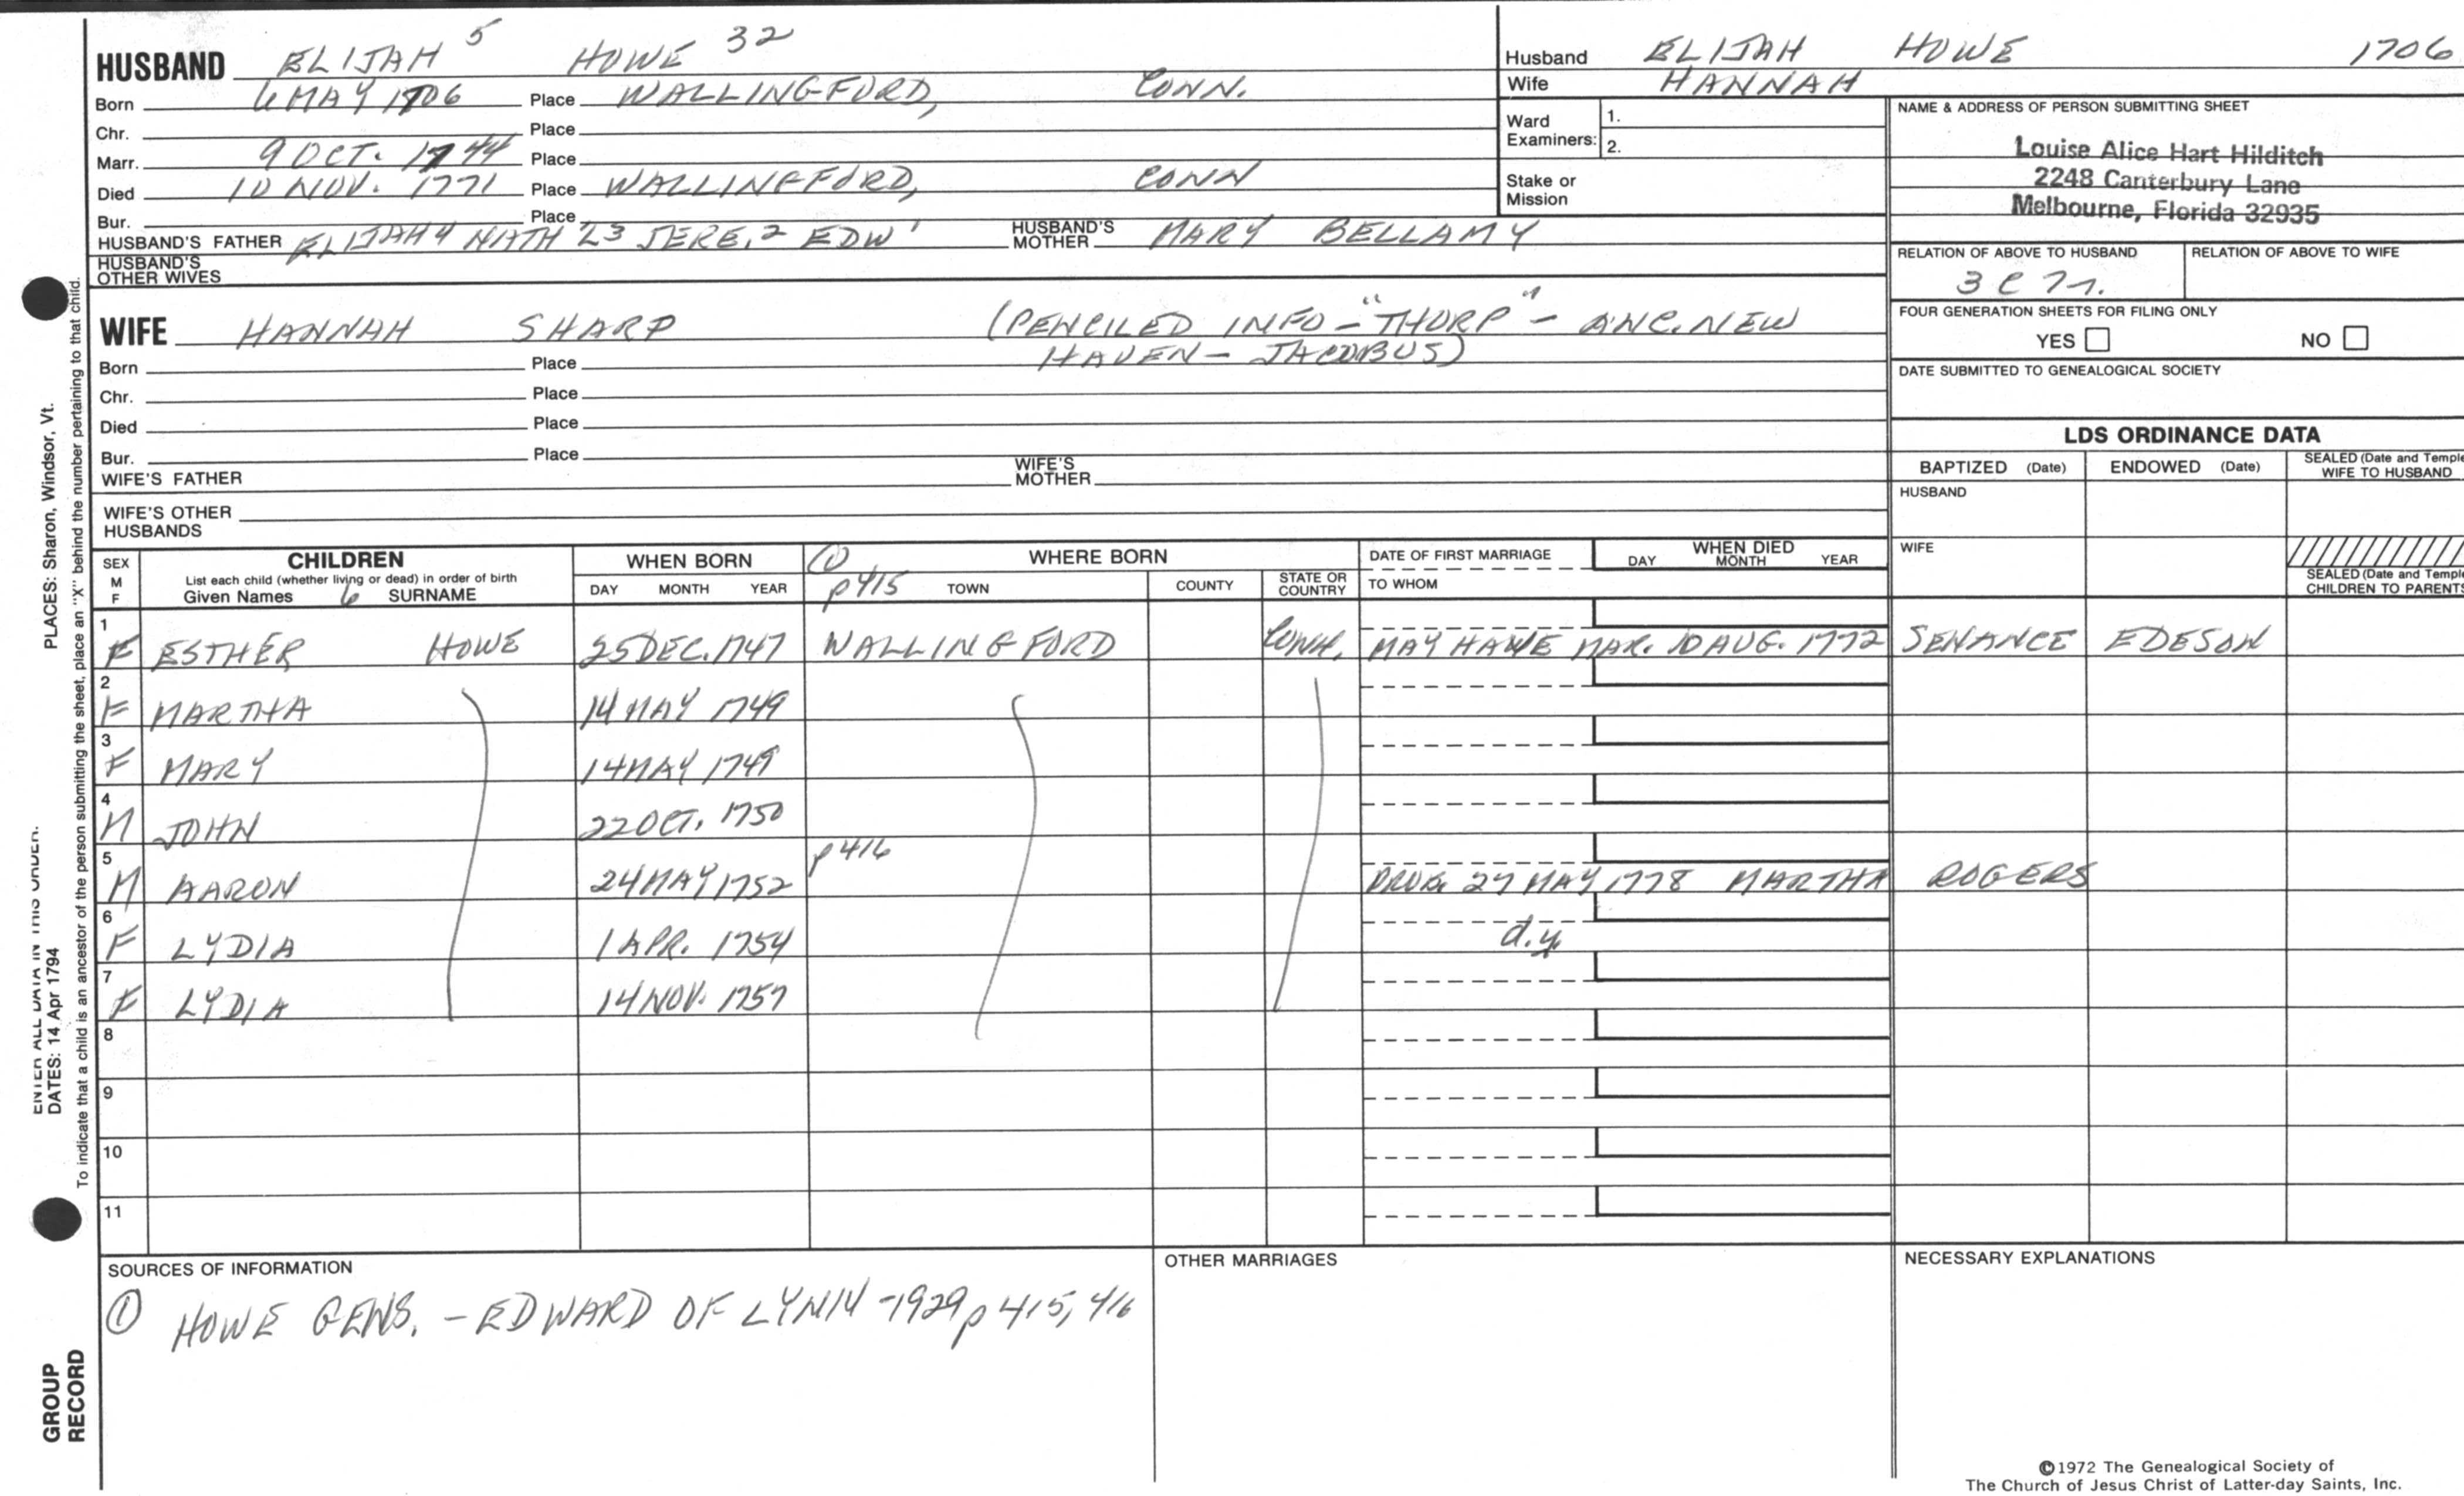 HUSBAND ELIJAH 5 HOWE 32
Born 6 MAY 1706 Place WALLINGFORD, CONN.
Chr. Place
Marr. 9 OCT. 1744 Place
Died 10 NOV. 1771 Place WALLINGFORD, CONN
Bur. Place
HUSBAND'S FATHER ELIJAH 4 NATH'L 3 JERE. 2 EDW 1 HUSBAND'S MOTHER MARY BELLAMY
HUSBAND'S OTHER WIVES
WIFE HANNAH SHARP (PENCILED INFO - "THORP" - ANC. NEW
HAVEN - JACOBUS)
Born Place
Chr. Place
Died Place
Bur. Place
WIFE'S FATHER WIFE'S MOTHER
WIFE'S OTHER HUSBANDS
Husband ELIJAH HOWE 1706
Wife HANNAH
Ward Examiners: 1.
2.
Stake or Mission
NAME & ADDRESS OF PERSON SUBMITTING SHEET
Louise Alice Hart Hilditch
2248 Canterbury Lane
Melbourne, Florida 32935
RELATION OF ABOVE TO HUSBAND RELATION OF ABOVE TO WIFE
3 C 7 r.
FOUR GENERATION SHEETS FOR FILING ONLY
YES NO
DATE SUBMITTED TO GENEALOGICAL SOCIETY
LDS ORDINANCE DATA
BAPTIZED (Date) ENDOWED (Date) SEALED (Date and Temple WIFE TO HUSBAND
HUSBAND
WIFE
SEALED (Date and Temple CHILDREN TO PARENTS
SEX M F CHILDREN WHEN BORN (1) WHERE BORN DATE OF FIRST MARRIAGE WHEN DIED
List each child (whether living or dead) in order of birth
Given Names 6 SURNAME DAY MONTH YEAR p415 TOWN COUNTY STATE OR COUNTRY TO WHOM DAY MONTH YEAR
1 F ESTHER HOWE 25 DEC. 1747 WALLINGFORD CONN. MAY HAVE MAR. 10 AUG. 1772 SENANCE EDESON
2 F MARTHA 14 MAY 1749
3 F MARY 14 MAY 1749
4 M JOHN 22 OCT. 1750
5 M AARON 24 MAY 1752 p416 PROB. 27 MAY 1778 MARTHA ROGERS
6 F LYDIA 1 APR. 1754 d.y.
7 F LYDIA 14 NOV. 1757
8
9
10
11
SOURCES OF INFORMATION
① HOWE GENS. - EDWARD OF LYNN - 1929 p 415, 416
OTHER MARRIAGES
NECESSARY EXPLANATIONS
©1972 The Genealogical Society of
The Church of Jesus Christ of Latter-day Saints, Inc.
ENTER ALL DATA IN THIS ORDER.
DATES: 14 Apr 1794
PLACES: Sharon, Windsor, Vt.
To indicate that a child is an ancestor of the person submitting the sheet, place an "X" behind the number pertaining to that child.
GROUP
RECORD